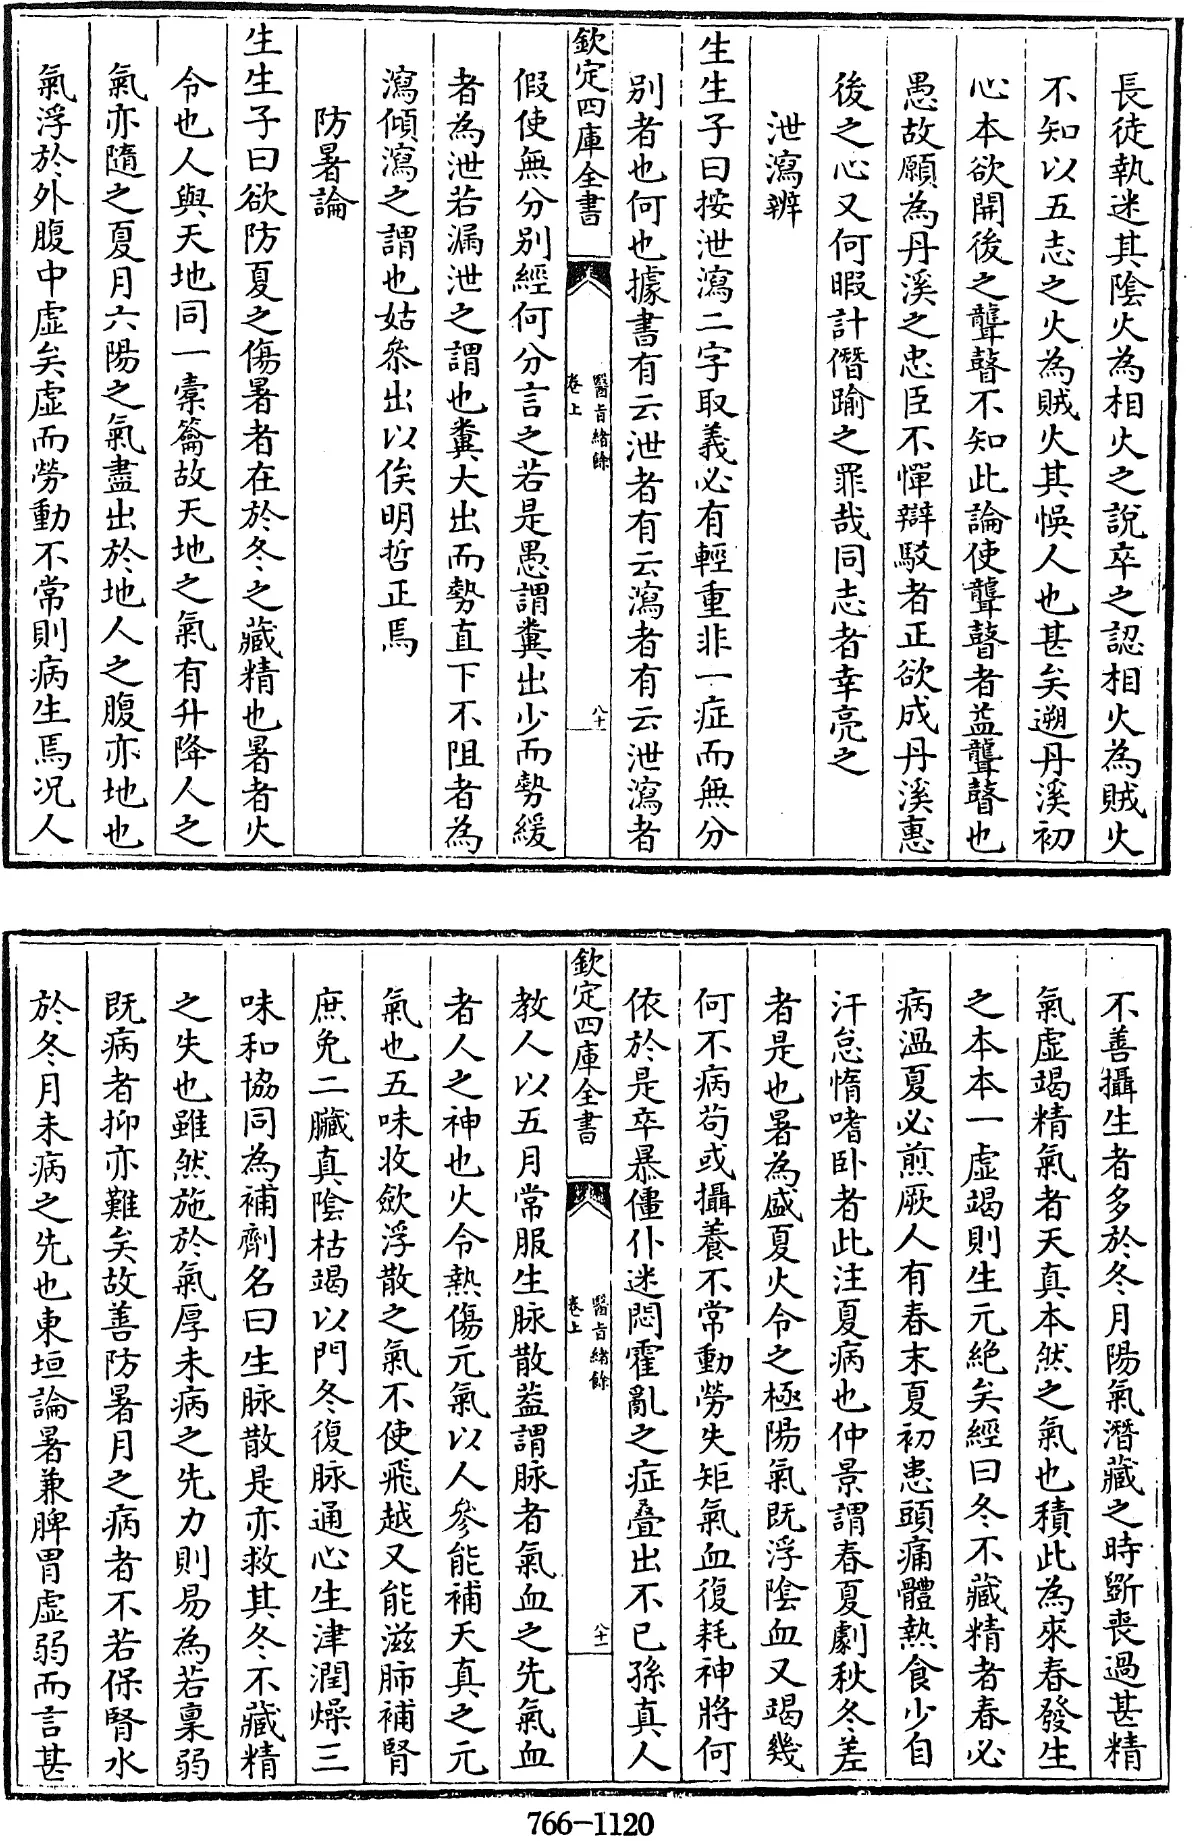 長徒執迷其陰火為相火之說卒之認相火為賊火
不知以五志之火為賊火其悮人也甚矣遡丹溪初
心本欲開後之聾瞽不知此論使聾瞽者益聾瞽也
愚故願為丹溪之忠臣不憚辯駁者正欲成丹溪惠
後之心又何暇計僭踰之罪哉同志者幸亮之
泄瀉辨
生生子曰按泄瀉二字取義必有輕重非一症而無分
別者也何也據書有云泄者有云瀉者有云泄瀉者
欽定四庫全書
醫旨緒餘
卷上
八十
假使無分別經何分言之若是愚謂糞出少而勢緩
者為泄若漏泄之謂也糞大出而勢直下不阻者為
瀉傾瀉之謂也姑叅出以俟明哲正焉
防暑論
生生子曰欲防夏之傷暑者在於冬之藏精也暑者火
令也人與天地同一橐籥故天地之氣有升降人之
氣亦隨之夏月六陽之氣盡出於地人之腹亦地也
氣浮於外腹中虛矣虛而勞動不常則病生焉况人
不善攝生者多於冬月陽氣潛藏之時斵喪過甚精
氣虛竭精氣者天真本然之氣也積此為來春發生
之本本一虛竭則生元絶矣經曰冬不藏精者春必
病溫夏必煎厥人有春末夏初患頭痛體熱食少自
汗怠惰嗜卧者此注夏病也仲景謂春夏劇秋冬差
者是也暑為盛夏火令之極陽氣既浮陰血又竭幾
何不病苟或攝養不常動勞失矩氣血復耗神將何
依於是卒暴僵仆迷悶霍亂之症叠出不已孫真人
欽定四庫全書
醫旨緒餘
卷上
八十一
教人以五月常服生脉散葢謂脉者氣血之先氣血
者人之神也火令熱傷元氣以人參能補天真之元
氣也五味收斂浮散之氣不使飛越又能滋肺補腎
庶免二臟真陰枯竭以門冬復脉通心生津潤燥三
味和協同為補劑名曰生脉散是亦救其冬不藏精
之失也雖然施於氣厚未病之先力則易為若稟弱
既病者抑亦難矣故善防暑月之病者不若保腎水
於冬月未病之先也東垣論暑兼脾胃虛弱而言甚
766-1120